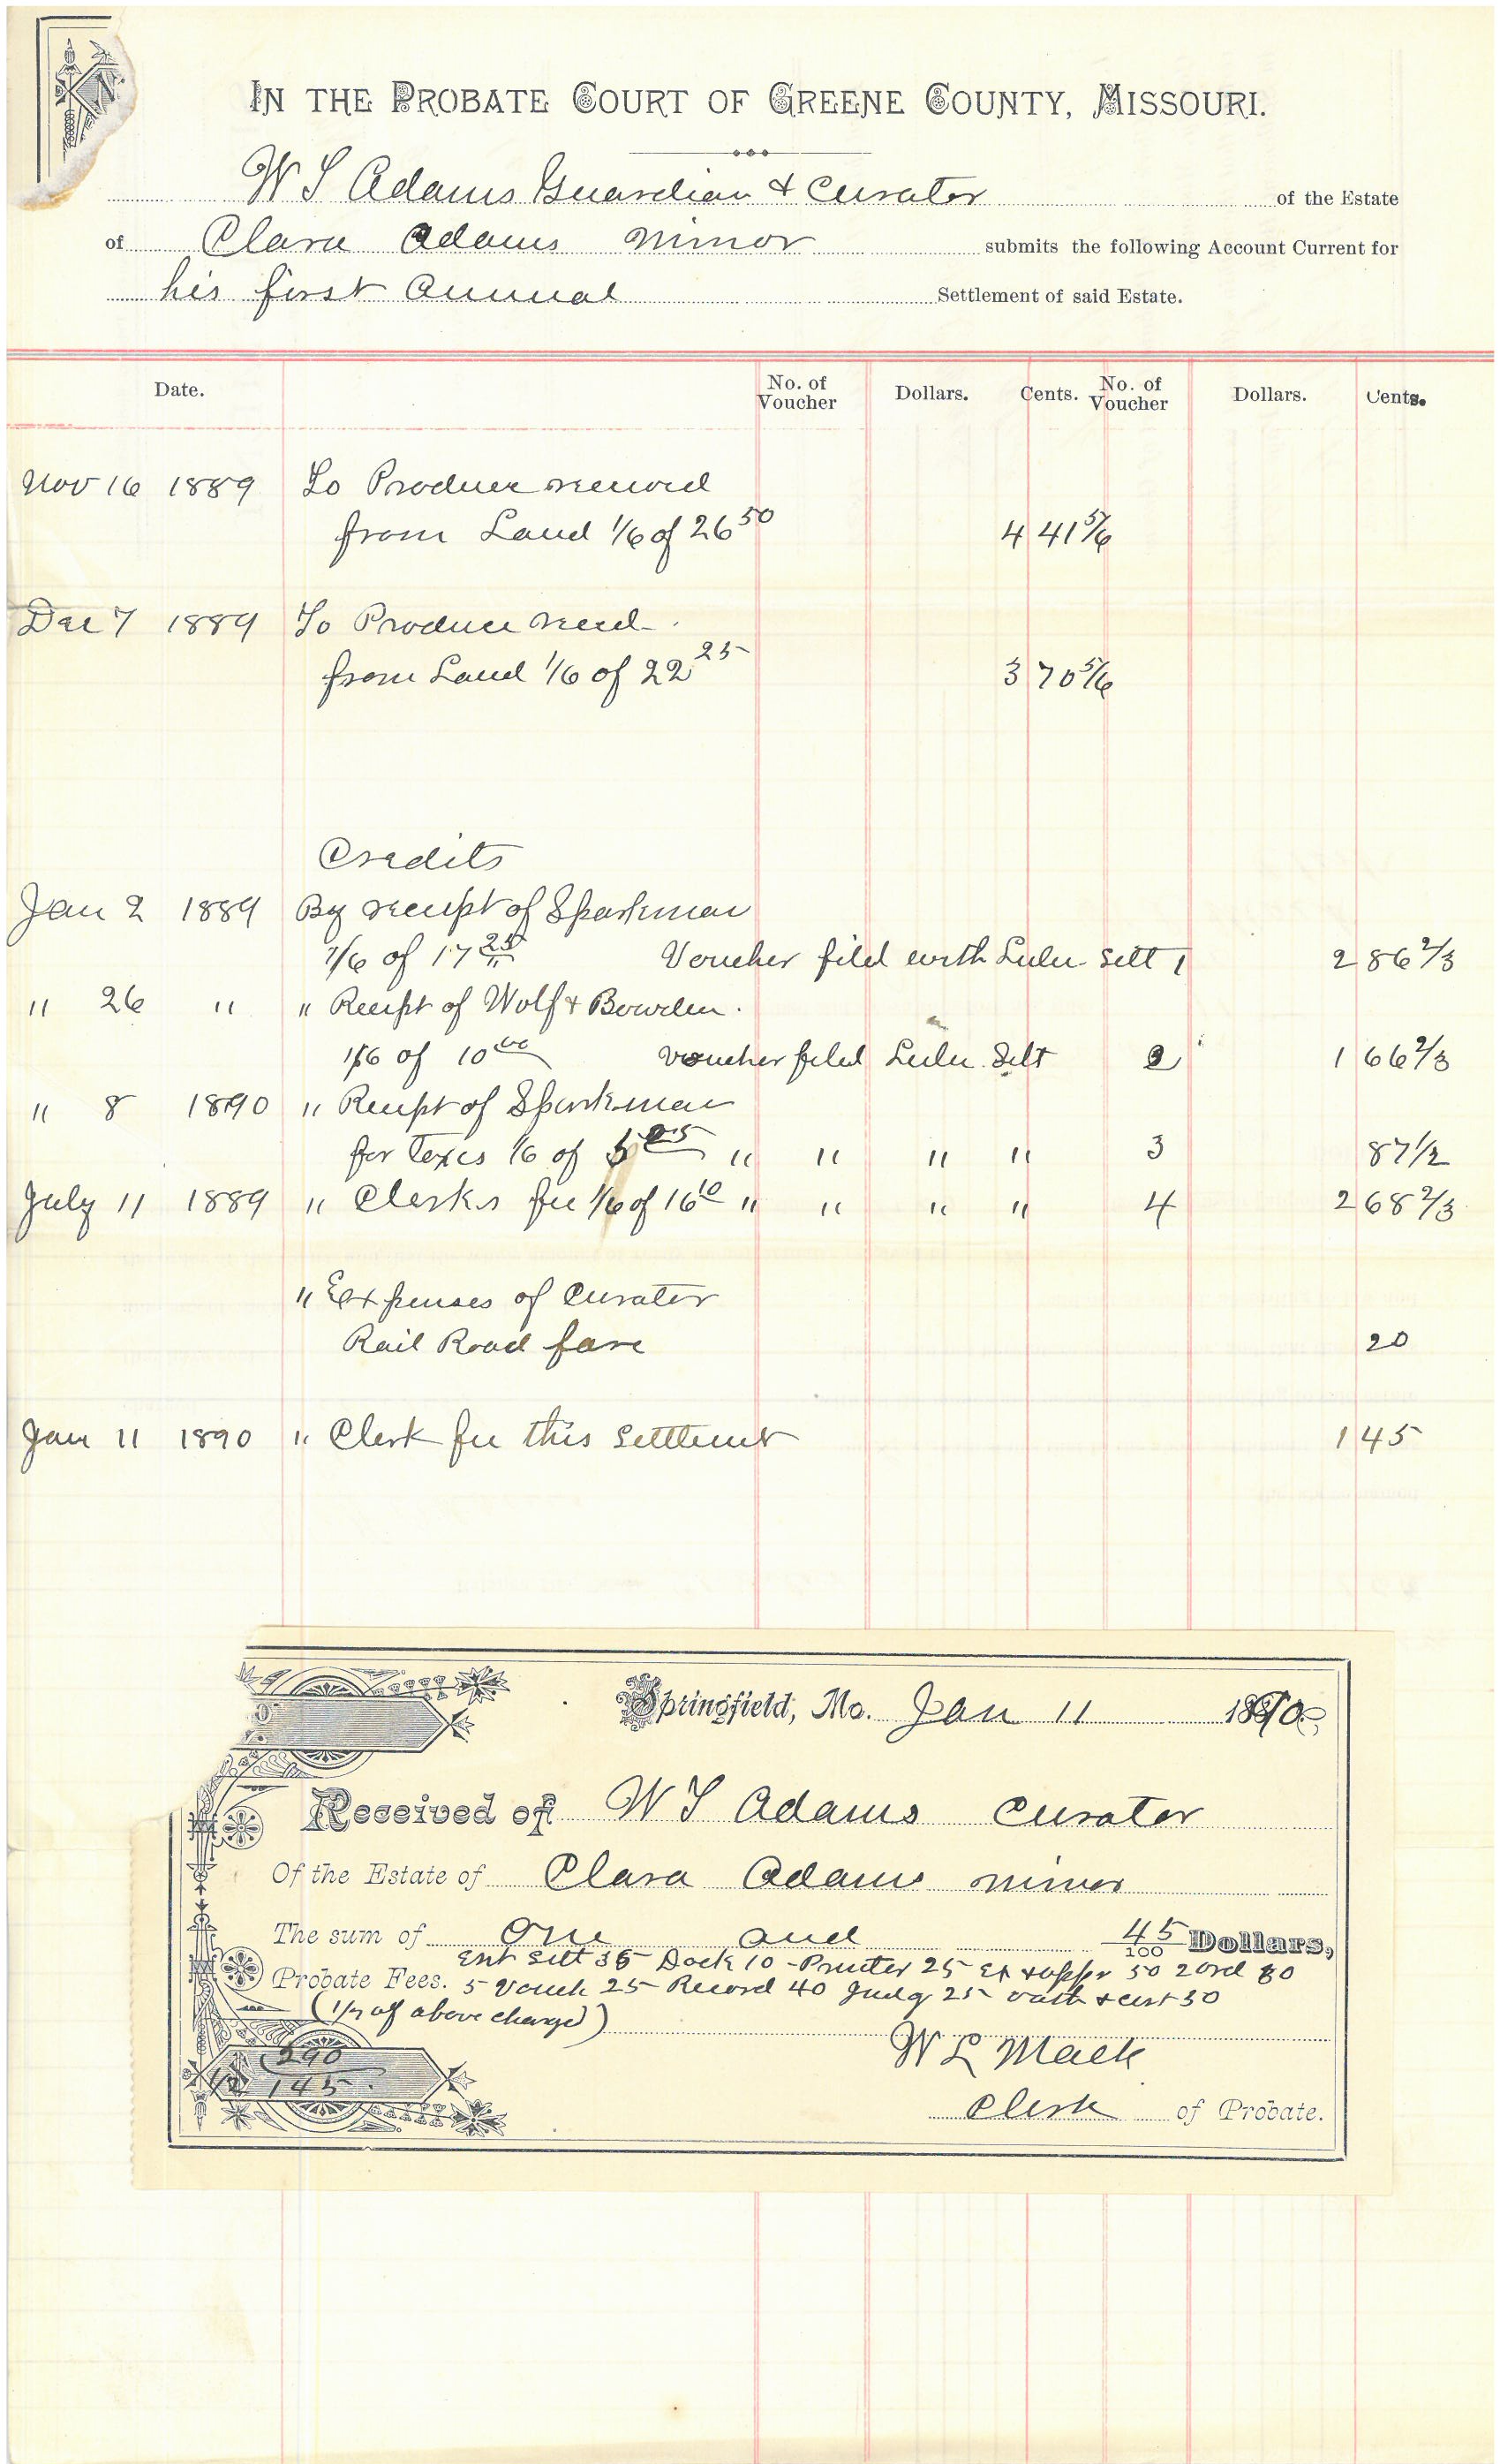 IN THE PROBATE COURT OF GREENE COUNTY, MISSOURI.
W S Adams Guardian & Curator of the Estate
of Clara Adams minor submits the following Account Current for
his first Annual Settlement of said Estate.
Date. No. of Voucher Dollars. Cents. No. of Voucher Dollars. Cents.
Nov 16 1889 To Produce
from Land 1/6 of 26 50 4 41 5/6
Dec 7 1889 To Produce recd
from Land 1/6 of 22 25 3 70 5/6
Credits
Jan 2 1889 By receipt of Sparkman
1/6 of 17 25 Voucher filed with Lulu Sett 1 2 86 2/3
" 26 " " Receipt of Wolf & Bowden.
1/6 of 10 00 voucher filed Lulu Sett 2 1 66 2/3
" 8 1890 " Receipt of Sparkman
for Taxes 1/6 of " " " " 3 87 1/2
July 11 1889 " Clerks fee 1/6 of 16 10 " " " " 4 2 68 2/3
" Expenses of Curator
Rail Road fare 20
Jan 11 1890 " Clerk fee this settlemt 1 45
Springfield, Mo. Jan 11 1890
Received of W S Adams Curator
Of the Estate of Clara Adams minor
The sum of One and 45/100 Dollars,
Ent Sett 35 Dock 10 - Printer 25 Ex & appr 50 2 ord 80
Probate Fees. 5 Vouch 25 Record 40 Judg 25 oath & cert 30
(1/2 of above charge)
290
1/2 145
W L Mack
Clerk of Probate.